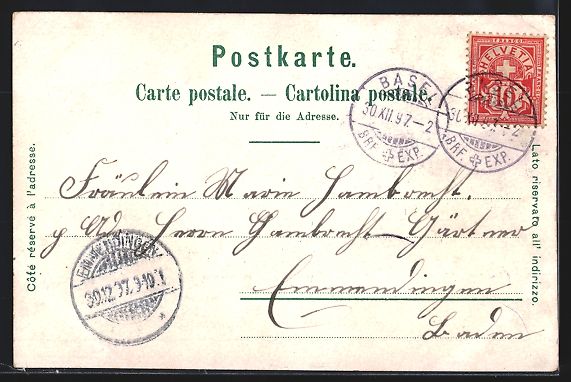 Postkarte.
Carte postale. — Cartolina postale.
Nur für die Adresse.
FRANCO
HELVETIA
10
BASEL
30 XII 97.–2
BRF. EXP.
BASEL
30 XII 97.–2
BRF. EXP.
Côté réservé à l'adresse.
Lato riservato all' indirizzo.
Fräulein Marie Hambrecht.
p Ad. Herrn Hambrecht-Gärtner
Emmendingen
Baden
EMMENDINGEN
30.12.97. 9-10.